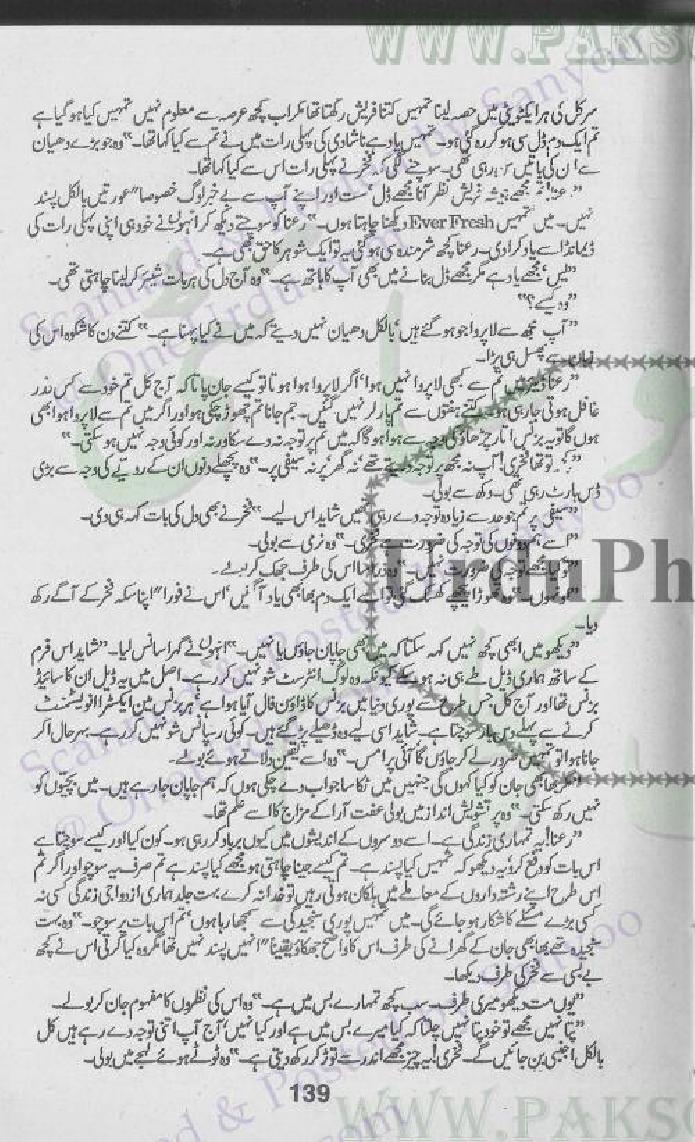 WWW.PAKSO
سرکل کی ہر ایکٹیویٹی میں حصہ لینا تمہیں کتنا فریش رکھتا تھا مگر اب کچھ عرصہ سے معلوم نہیں تمہیں کیا ہو گیا ہے
تم ایک دم ڈل سی ہو کر رہ گئی ہو۔ تمہیں یاد ہے نا شادی کی پہلی رات میں نے تم سے کیا کہا تھا۔“ وہ جو بڑے دھیان
سے ان کی باتیں سن رہی تھی۔ سوچنے لگی کہ فخر نے پہلی رات اس سے کیا کہا تھا۔
”رعنا! تم مجھے ہمیشہ فریش نظر آنا مجھے ڈل‘ ست اور اپنے آپ سے بے خبر لوگ خصوصا“ عورتیں بالکل پسند
نہیں۔ میں تمہیں Ever Fresh دیکھنا چاہتا ہوں۔“ رعنا کو سوچتے دیکھ کر انہوں نے خود ہی اپنی پہلی رات کی
ڈیمانڈ اسے یاد کرا دی۔ رعنا کچھ شرمندہ سی ہو گئی یہ تو ایک شوہر کا حق بھی ہے۔
”یس‘ مجھے یاد ہے مگر مجھے ڈل بنانے میں بھی آپ کا ہاتھ ہے۔“ وہ آج دل کی ہر بات شیئر کر لینا چاہتی تھی۔
”وہ کیسے؟“
”آپ مجھ سے لاپروا جو ہو گئے ہیں‘ بالکل دھیان نہیں دیتے کہ میں نے کیا پہنا ہے۔“ کتنے دن کا شکوہ اس کی
زبان سے پھسل ہی پڑا۔
”رعنا ڈیئر میں تم سے کبھی لاپروا نہیں ہوا‘ اگر لاپروا ہوا ہوتا تو کیسے جان پاتا کہ آج کل تم خود سے کس قدر
غافل ہوتی جا رہی ہو۔ کتنے ہفتوں سے تم پارلر نہیں گئیں۔ جم جانا تم چھوڑ چکی ہو اور اگر میں تم سے لاپروا ہوا بھی
ہوں گا تو یہ بزنس اتار چڑھاؤ کی وجہ سے ہوا ہو گا کہ میں تم پر توجہ نہ دے سکا ورنہ اور کوئی وجہ نہیں ہو سکتی۔“
تو تھا فخری! آپ نہ مجھ پر توجہ دیتے تھے‘ نہ گھر پر نہ سیفی پر۔“ وہ پچھلے دنوں ان کے رویے کی وجہ سے بڑی
ڈس ہارٹ رہی تھی۔ دکھ سے بولی۔
”سیفی پر تم جو حد سے زیادہ توجہ دے رہی تھیں شاید اس لیے۔“ فخر نے بھی دل کی بات کہہ ہی دی۔
”اسے ہم دونوں کی توجہ کی ضرورت ہے فخری۔“ وہ نرمی سے بولی۔
”تو کیا مجھے توجہ کی ضرورت نہیں۔“ وہ ذرا سا اس کی طرف جھک کر بولے۔
”اونہوں۔“ وہ تھوڑا پیچھے کھسک گئی تو اسے ایک دم بھابھی یاد آ گئیں‘ اس نے فورا“ اپنا مسئلہ فخر کے آگے رکھ
دیا۔
”دیکھو میں ابھی کچھ نہیں کہہ سکتا کہ میں بھی جاپان جاؤں یا نہیں۔“ انہوں نے گہرا سانس لیا۔ ”شاید اس فرم
کے ساتھ ہماری ڈیل طے ہی نہ ہو سکے کیونکہ وہ لوگ انٹرسٹ شو نہیں کر رہے۔ اصل میں یہ ڈیل ان کا سائیڈ
بزنس تھا اور آج کل جس طرح سے پوری دنیا میں بزنس کا ڈاؤن فال آیا ہوا ہے‘ ہر بزنس مین ایکسٹرا انویسٹمنٹ
کرنے سے پہلے دس بار سوچتا ہے۔ شاید اسی لیے وہ ڈھیلے پڑ گئے ہیں۔ کوئی رسپانس شو نہیں کر رہے۔ بہرحال اگر
جانا ہوا تو تمہیں ضرور لے کر جاؤں گا آئی پرامس۔“ وہ اسے یقین دلاتے ہوئے بولے۔
بھابھی جان کو کیا کہوں گی جنہیں میں ٹکا سا جواب دے چکی ہوں کہ ہم جاپان جا رہے ہیں۔ میں بچیوں کو
نہیں رکھ سکتی۔“ وہ پر تشویش انداز میں بولی عفت آرا کے مزاج کا اسے علم تھا۔
”رعنا! یہ تمہاری زندگی ہے۔ اسے دوسروں کے اندیشوں میں کیوں برباد کر رہی ہو۔ کون کیا اور کیسے سوچتا ہے
اس بات کو دفع کرو یہ دیکھو کہ تمہیں کیا پسند ہے۔ تم کیسے جینا چاہتی ہو مجھے کیا پسند ہے تم صرف یہ سوچو اور اگر تم
اس طرح اپنے رشتہ داروں کے معاملے میں ہلکان ہوتی رہیں تو خدانہ کرے بہت جلد ہماری ازدواجی زندگی کسی نہ
کسی بڑے مسئلے کا شکار ہو جائے گی۔ میں تمہیں پوری سنجیدگی سے سمجھا رہا ہوں‘ تم اس بات پر سوچو۔“ وہ بہت
سنجیدہ تھے بھابھی جان کے گھرانے کی طرف اس کا واضح جھکاؤ یقینا“ انہیں پسند نہیں تھا مگر وہ کیا کرتی اس نے کچھ
بے بسی سے فخر کی طرف دیکھا۔
”یوں مت دیکھو میری طرف۔ سب کچھ تمہارے بس میں ہے۔“ وہ اس کی نظروں کا مفہوم جان کر بولے۔
”پتا نہیں مجھے تو خود پتا نہیں چلتا کہ کیا میرے بس میں ہے اور کیا نہیں‘ آج آپ اتنی توجہ دے رہے ہیں کل
بالکل اجنبی بن جائیں گے۔ فخری! یہ چیز مجھے اندر سے توڑ کر رکھ دیتی ہے۔“ وہ ٹوٹے ہوئے لہجے میں بولی۔
UrduPh
139
WWW.PAKSO